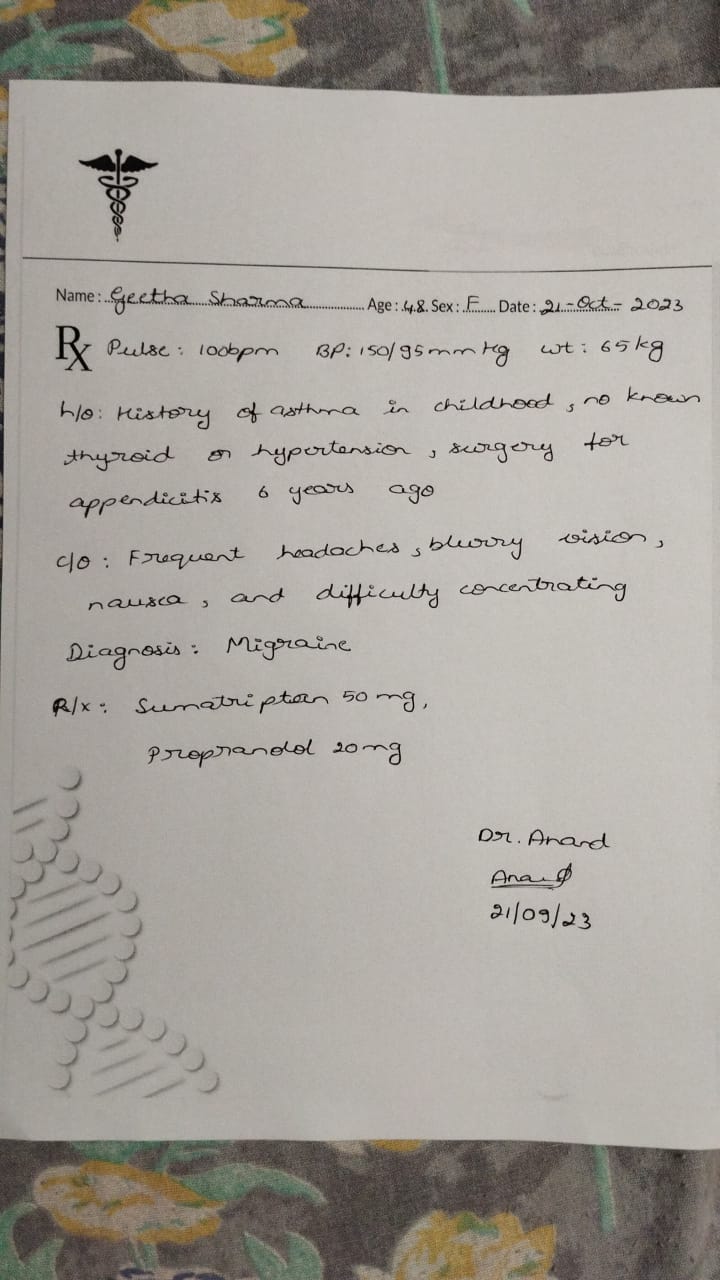 Name: Geetha Sharma Age: 48 Sex: F Date: 21-Oct-2023
Rx Pulse: 100bpm BP: 150/95mmHg wt: 65kg
h/o: History of asthma in childhood, no known
thyroid or hypertension, surgery for
appendicitis 6 years ago
c/o: Frequent headaches, blurry vision,
nausea, and difficulty concentrating
Diagnosis: Migraine
R/x: Sumatriptan 50 mg,
Propranolol 20mg
Dr. Anand
Anand
21/09/23